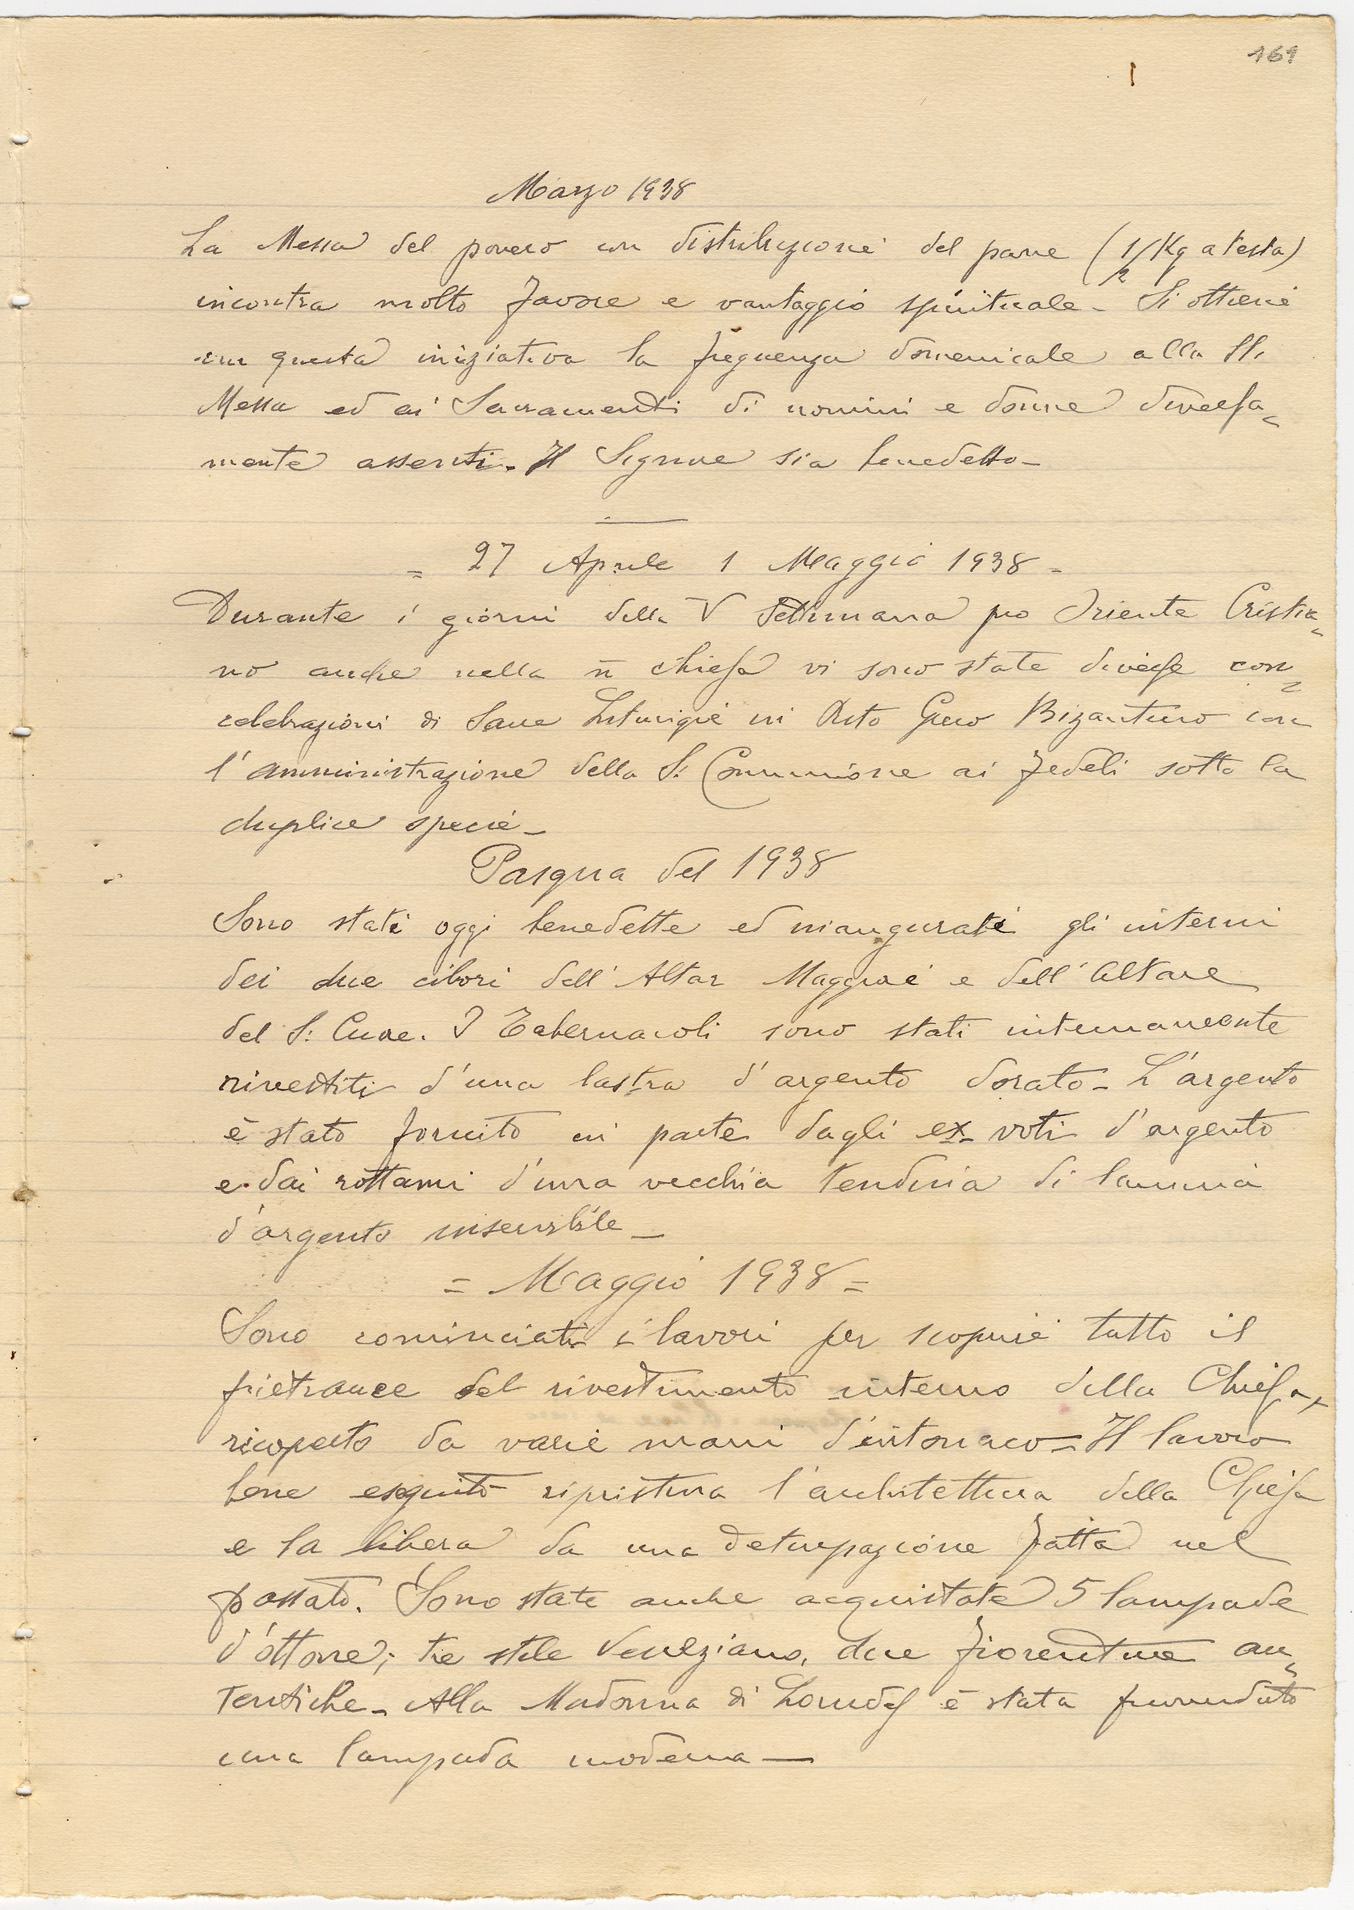 161
Marzo 1938
La Messa del povero con distribuzione del pane (1/2 Kg a testa)
incontra molto favore e vantaggio spirituale - Si ottiene
con questa iniziativa la frequenza domenicale alla SS.
Messa ed ai Sacramenti di uomini e donne diversa=
mente assenti. Il Signore sia benedetto -
= 27 Aprile 1 Maggio 1938 =
Durante i giorni della V Settimana pro Oriente Cristia=
no anche nella n chiesa vi sono state diverse con=
celebrazioni di Sacre Liturgie in Rito Greco Bizantino con
l'amministrazione della S. Comunione ai fedeli sotto la
duplice specie -
Pasqua del 1938
Sono stati oggi benedette ed inaugurati gli interni
dei due cibori dell'Altar Maggiore e dell'Altare
del S: Cuore. I Tabernacoli sono stati internamente
rivestiti d'una lastra d'argento dorato - L'argento
è stato fornito in parte dagli ex-voti d'argento
e dai rottami d'una vecchia tendina di lamina
d'argento inservibile -
= Maggio 1938 =
Sono cominciati i lavori per scoprire tutto il
pietrame del rivestimento interno della Chiesa,
ricoperto da varie mani d'intonaco = Il lavoro
bene eseguito ripristina l'architettura della Chiesa
e la libera da una deturpazione fatta nel
passato. Sono state anche acquistate 5 lampade
d'ottone; tre stile Veneziano, due fiorentine au=
tentiche - Alla Madonna di Lourdes è stata
una lampada moderna -